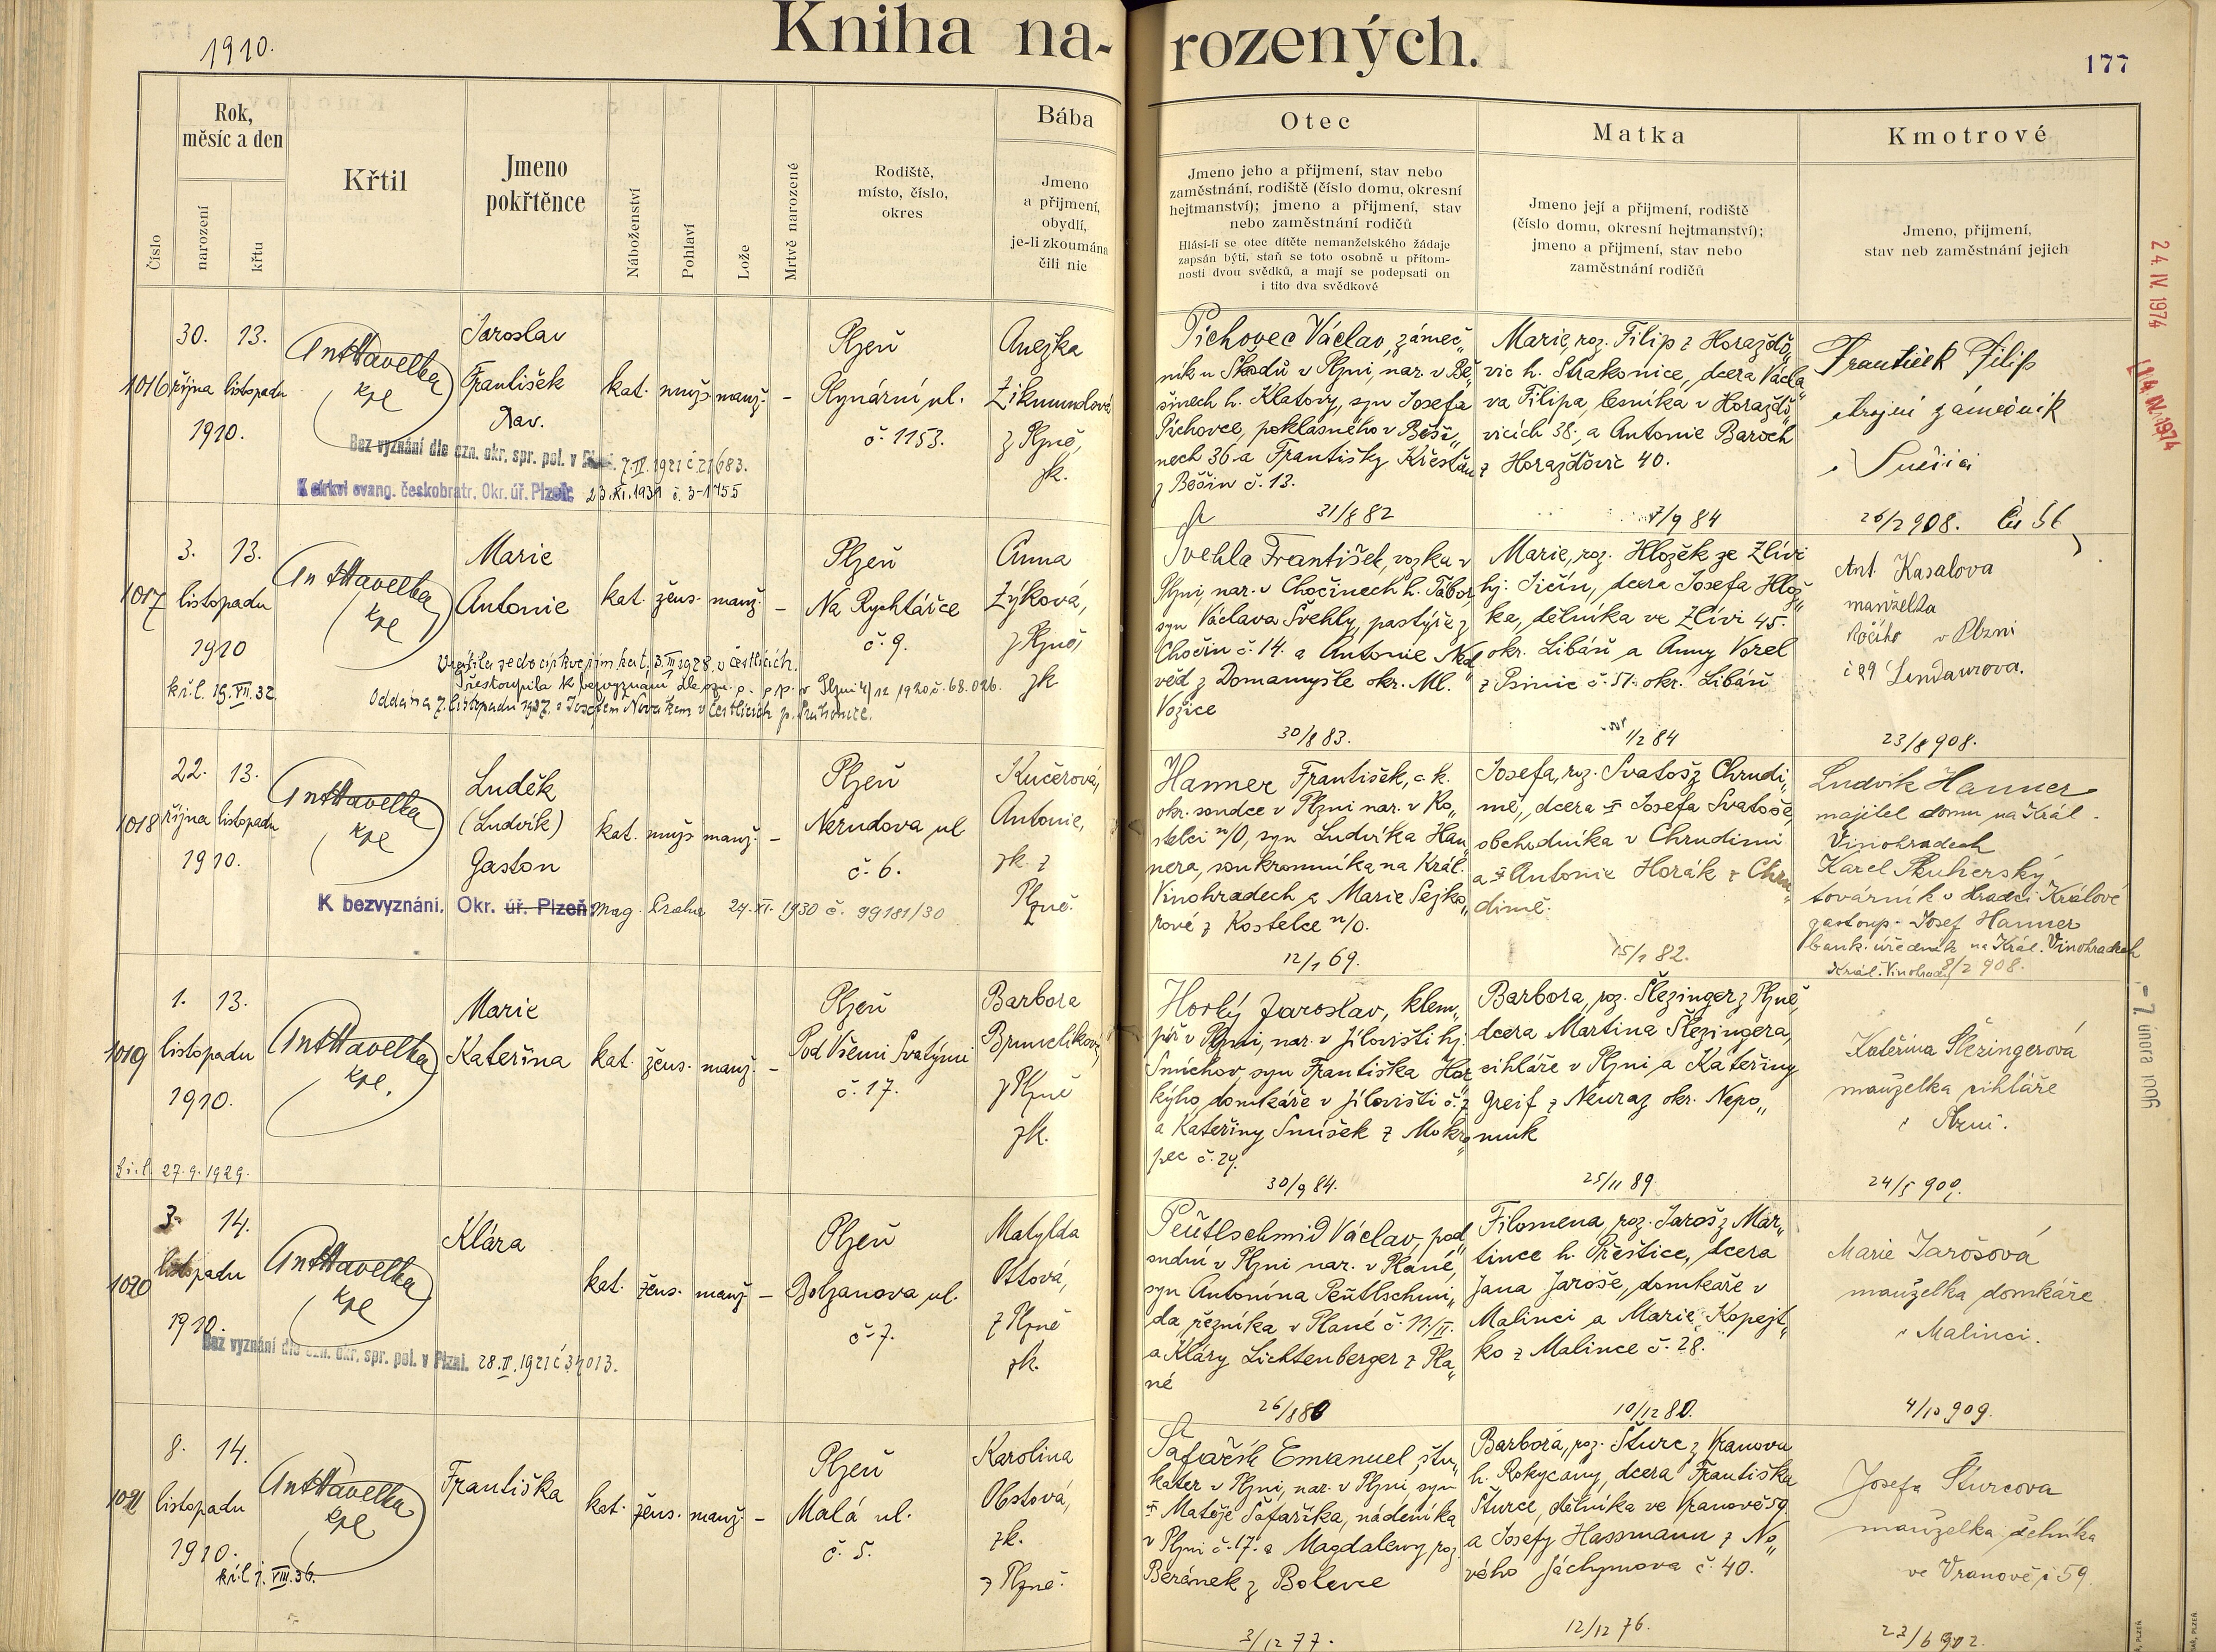 1910.
Kniha na-
rozených.
177
Rok,
měsíc a den
Číslo
narození
křtu
Křtil
Jmeno
pokřtěnce
Náboženství
Pohlaví
Lože
Mrtvě narozené
Rodiště,
místo, číslo,
okres
Bába
Jmeno
a přijmení,
obydlí,
je-li zkoumána
čili nic
Otec
Jmeno jeho a přijmení, stav nebo
zaměstnání, rodiště (číslo domu, okresní
hejtmanství); jmeno a přijmení, stav
nebo zaměstnání rodičů
Hlásí-li se otec dítěte nemanželského žádaje
zapsán býti, staň se toto osobně u přítom-
nosti dvou svědků, a mají se podepsati on
i tito dva svědkové
Matka
Jmeno její a přijmení, rodiště
(číslo domu, okresní hejtmanství);
jmeno a přijmení, stav nebo
zaměstnání rodičů
Kmotrové
Jmeno, přijmení,
stav neb zaměstnání jejich
24. IV. 1974
1016
30. 13.
října listopadu
1910.
Ant Havelka
kpl
Jaroslav
František
Xav.
kat. muž. manž. -
Plzeň
Plynární ul.
č. 1153.
Anežka
Zikmundová
z Plzně,
zk.
Bez vyznání dle ozn. okr. spr. pol. v 7.IV.1921 č. 21683.
K církvi evang. českobratr. Okr. úř. Plzeň: 23.XI.1931 č. 3-1755
Pichovec Václav, zámeč„
ník u Škodů v Plzni, nar. v Bě„
šinech h. Klatovy, syn Josefa
Pichovce, poklasného v Běši„
nech 36 a Františky Křesťan
z Běšin č. 13.
31/8 82
Marie, roz. Filip z Horažďo„
vic h. Strakonice, dcera Václa„
va Filipa, lesníka v Horažďo„
vicích 38., a Antonie Baroch
z Horažďovic 40.
7/9 84
František Filip
strojní zámečník
v Sušici
26/2 908.
1017
3. 13.
listopadu
1910
Ant Havelka
kpl
Marie
Antonie
kat. žens. manž. -
Plzeň
Na Rychtářce
č. 9.
Anna
Zýková,
z Plzně,
zk
Vrátila se do církve řím. kat. 3.III 1928 v Čestlicích.
Přestoupila k bezvyznání dle ozn. o. s. p. v Plzni 4/12 1920 č. 68.026.
kř. l. 19.VII.32
Oddána 7. listopadu 1937. s Josefem Novákem v Čestlicích p. Průhonice.
Švehla František, vozka v
Plzni, nar. v Chočinech h. Tábor,
syn Václava Švehly, pastýře z
Chočin č. 14. a Antonie Ned„
věd z Domamyšle okr. Ml.
Vožice
30/8 83.
Marie, roz. Hlozěk ze Zlívi
hj. Jičín, dcera Josefa Hloz„
ka, dělníka ve Zlívi 45.
okr. Libáň a Anny Vorel
z Psinic č. 51. okr. Libáň
1/2 84
Ant. Kasalova
manželka
kočího v Plzni
č 29 Lindaurova.
23/8 908.
1018
22. 13.
října listopadu
1910.
Ant Havelka
kpl
Luděk
(Ludvík)
Gaston
kat. muž. manž. -
Plzeň
Nerudova ul
č. 6.
Kučerová,
Antonie,
zk. z
Plzně.
K bezvyznání. Okr. úř. Plzeň: Mag. Praha 24.XI.1930 č. 99181/30
Hanner František, c. k.
okr. soudce v Plzni nar. v Ko„
stelci n/O, syn Ludvíka Han„
nera, soukromníka na Král.
Vinohradech a Marie Sejko„
rové z Kostelce n/O.
12/1 69.
Josefa, roz. Svatoš z Chrudi„
mě, dcera † Josefa Svatoše,
obchodníka v Chrudimi
a † Antonie Horák z Chru„
dimě.
15/1 82.
Ludvík Hanner
majitel domu na Král.
Vinohradech
Karel Skuherský
továrník v Hradci Králové
zastoup. Josef Hanner
bank. úředník na Král. Vinohradech
Král. Vinohrady 8/2 908.
1019
1. 13.
listopadu
1910.
Ant Havelka
kpl.
Marie
Kateřina
kat. žens. manž. -
Plzeň
Pod Všemi Svatými
č. 17.
Barbora
z Plzně
zk.
kř. l. 27.9.1929.
Horký Jaroslav, klem„
píř v Plzni, nar. v Jílovišti hj.
Smíchov, syn Františka Hor„
kýho, domkáře v Jílovišti č. 7
a Kateřiny Smíšek z Mokro„
pec č. 24.
30/9 84.
Barbora, roz. Šlezinger z Plzně,
dcera Martina Šlezingera,
cihláře v Plzni a Kateřiny
Greif z Neuraz okr. Nepo„
muk
25/11 89.
Kateřina Šlezingerová
manželka cihláře
v Plzni.
- 7. února
1020
3. 14.
listopadu
1910.
Ant Havelka
kpl
Klára
kat. žens. manž. -
Plzeň
Bolzanova ul.
č. 7.
Matylda
Ottová,
z Plzně
zk.
Bez vyznání dle ozn. okr. spr. pol. v Plzni. 28.II.1921 č 34013.
Peütlschmid Václav, pod„
sudní v Plzni nar. v Plané,
syn Antonína Peütlschmi„
da, řezníka v Plané č. 11/II.
a Kláry Lichtenberger z Pla„
né
26/8 80
Filomena, roz. Jaroš z Mar„
tince h. Přeštice, dcera
Jana Jaroše, domkáře v
Malinci a Marie Kopejt„
ko z Malince č. 28.
10/12 80.
Marie Jarošová
manželka domkáře
v Malinci.
4/10 909.
1021
8. 14.
listopadu
1910.
kř. l. 1. VIII.36.
Ant Havelka
kpl
Františka
kat. žens. manž. -
Plzeň
Malá ul.
č. 5.
Karolina
Obstová,
zk.
z Plzně.
Šafařík Emanuel, štu„
katér v Plzni, nar. v Plzni, syn
† Matěje Šafaříka, nádeníka
v Plzni č. 17. a Magdaleny roz.
Beránek z Bolevce
3/12 77.
Barbora, roz. Šturc z Vranova
h. Rokycany, dcera Františka
Šturce, dělníka ve Vranově 59.
a Josefy Hassmann z No„
vého Jáchymova č. 40.
12/12 76.
Josefa Šturcova
manželka dělníka
ve Vranově č 59.